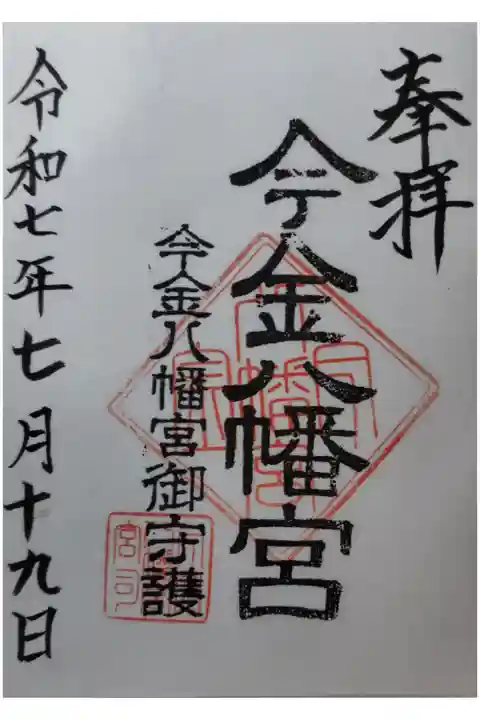 奉拝
今金八幡宮
今金八幡宮御守護
令和七年七月十九日
宮司